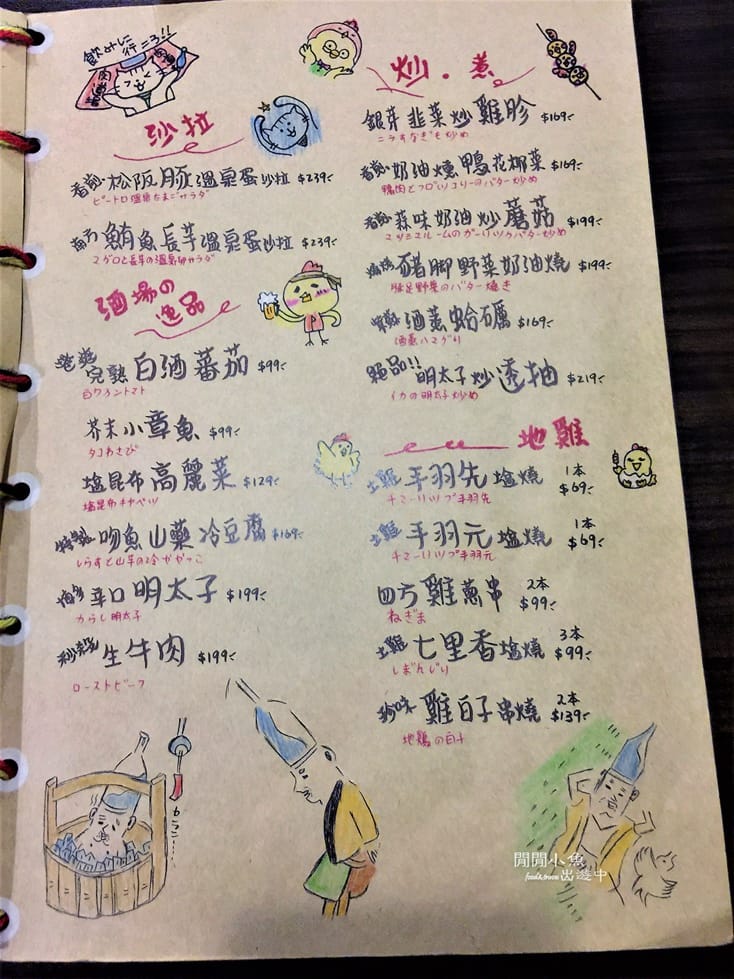 飲みに
行こう!!
沙拉
香煎松阪豚溫泉蛋沙拉 $239
ピートロ温泉たまごサラダ
鮪魚長芋溫泉蛋沙拉 $239
マグロと長芋の温泉卵サラダ
酒場の
逸品
完熟白酒蕃茄 $99
白ワイントマト
芥末小章魚 $99
タコわさび
塩昆布高麗菜 $129
塩昆布キャベツ
特製吻魚山藥冷豆腐 $169
しらすと山芋の冷ややっこ
辛口明太子 $199
からし明太子
秒殺生牛肉 $199
ローストビーフ
カラン
炒・煮
銀芽韭菜炒雞胗 $169
ニラすなぎも炒め
香煎奶油燒鴨花椰菜 $169
鴨肉とブロッコリーのバター炒め
香煎蒜味奶油炒蘑菇 $199
マッシュルームのガーリックバター炒め
豬腳野菜奶油燒 $199
豚足野菜のバター焼き
酒蒸蛤蠣 $169
酒蒸ハマグリ
絕品!!明太子炒透抽 $219
イカの明太子炒め
地雞
土雞手羽先塩燒 1本 $69
チューリップ手羽先
土雞手羽元塩燒 1本 $69
チューリップ手羽元
四方雞蔥串 2本 $99
ねぎま
土雞七里香塩燒 3本 $99
しぼんじり
珍味雞白子串燒 2本 $139
地鶏の白子
閒閒小魚
food&travel出遊中